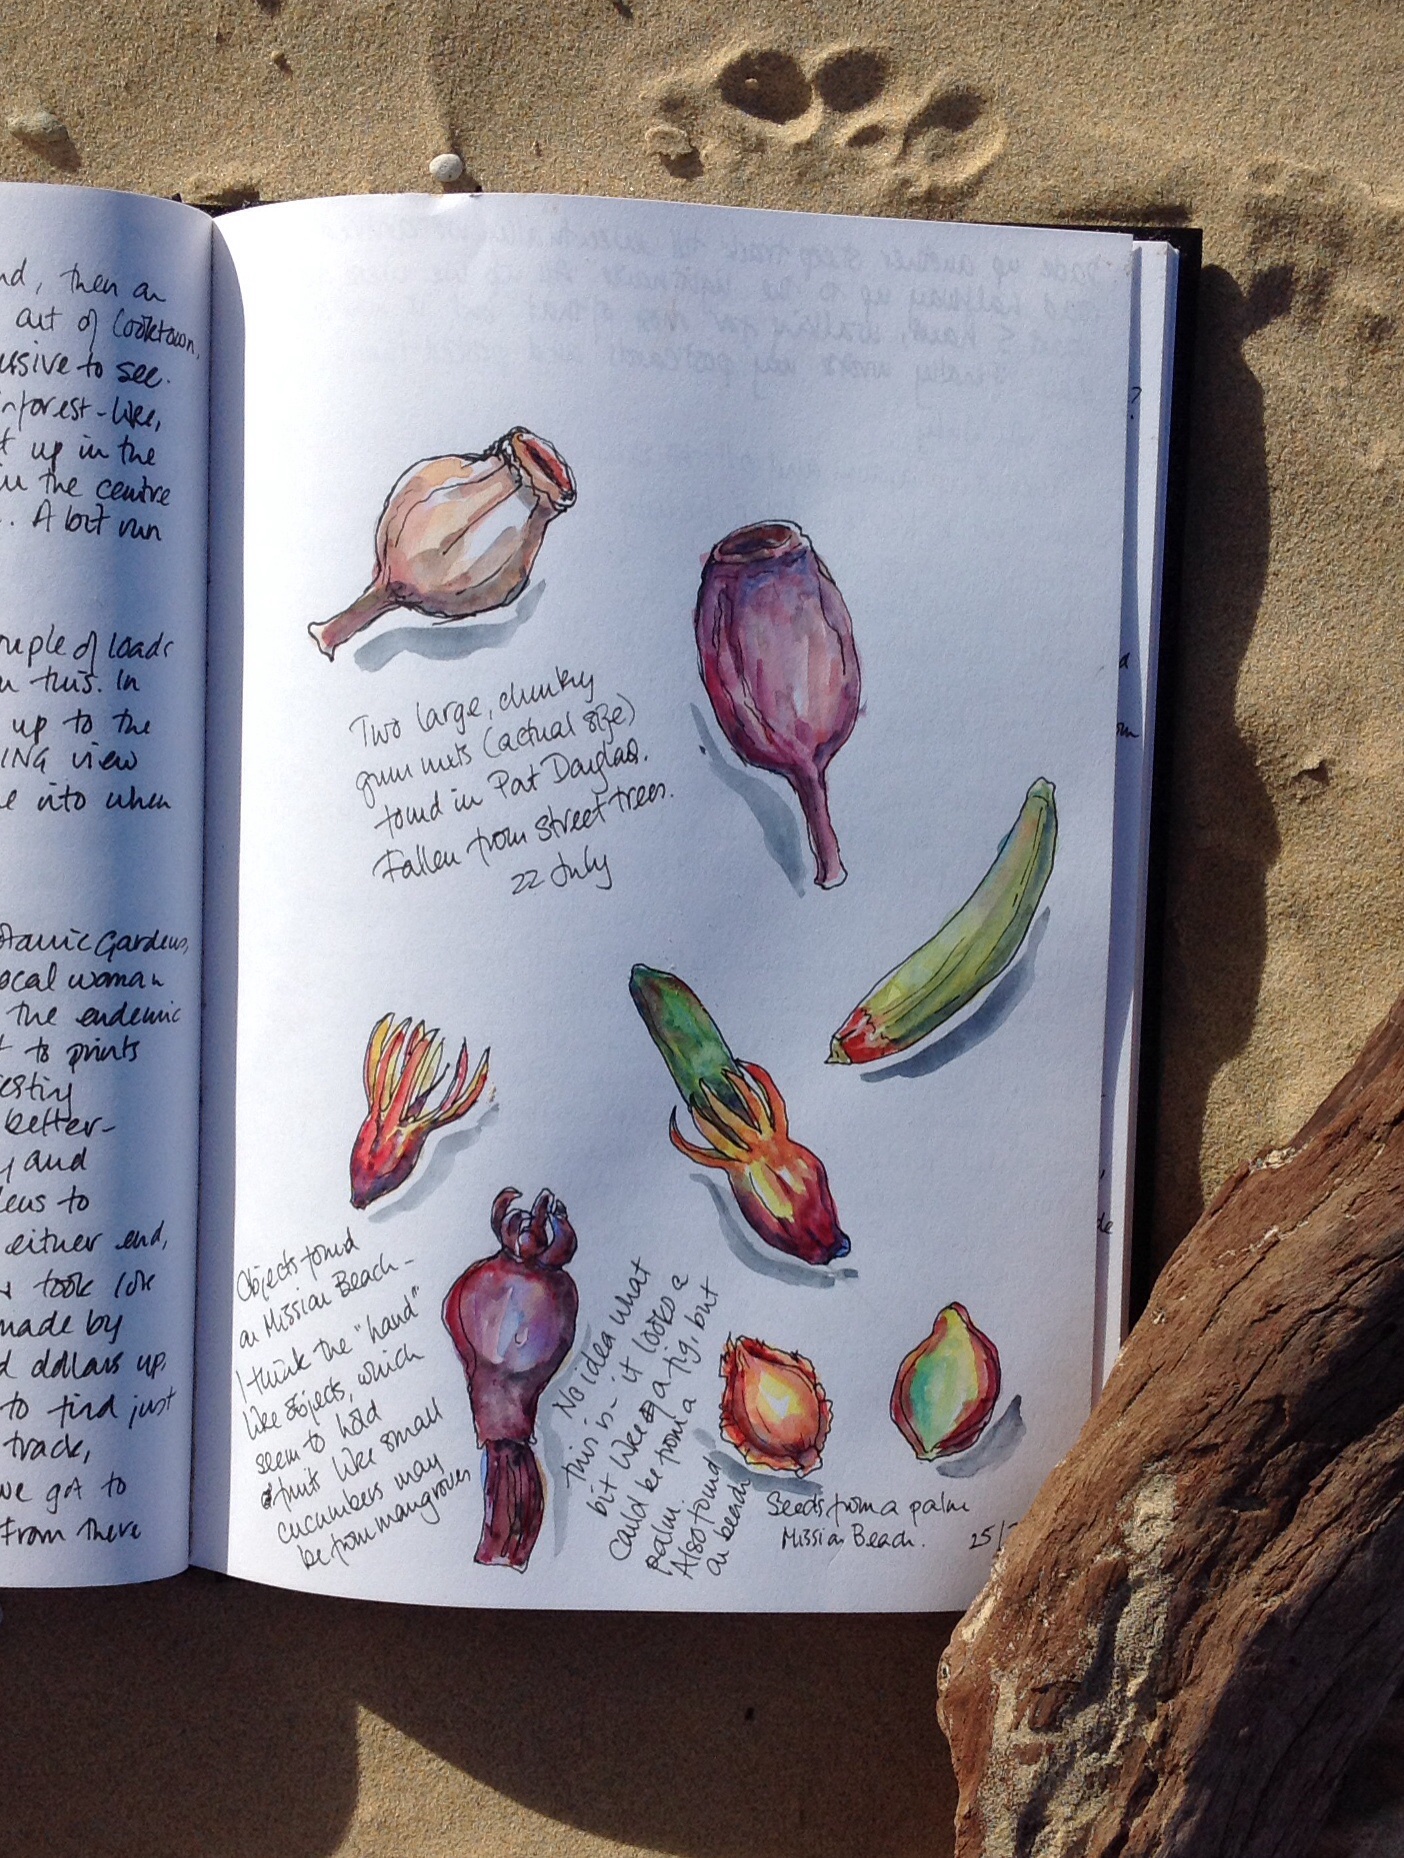 nd, then an
out of Cooktown,
ursive to see.
nforest-like,
t up in the
in the centre
. A bit run
ouple of loads
u this. In
up to the
ING view
e into when
otanic Gardens,
ocal woman
the endemic
t to prints
esting
better-
y and
leus to
either end,
took
made by
d dollars up.
to find just
track,
we got to
From there
Two large, chunky
gum nuts (actual size)
found in Port Douglas.
Fallen from street trees.
22 July
Objects found
on Mission Beach -
I think the "hand"
like objects, which
seem to hold
fruit like small
cucumbers may
be from mangroves
No idea what
this is - it looks a
bit like a fig, but
could be from a
palm.
Also found
on beach
Seeds from a palm
Mission Beach. 25/
?
d
de